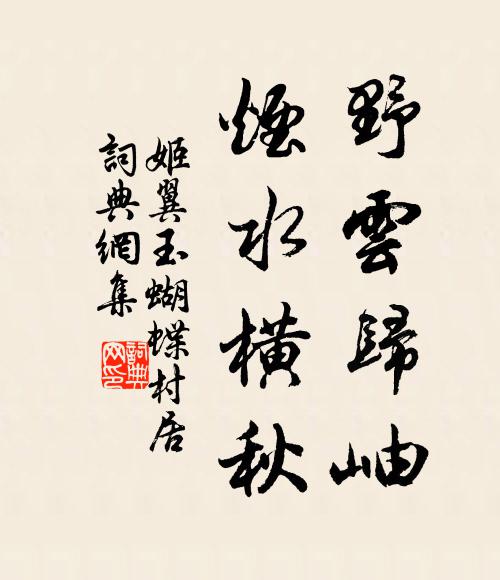 野雲歸岫
煙水橫秋
姬翼玉蝴蝶村居
詞典網集
詞典
网印